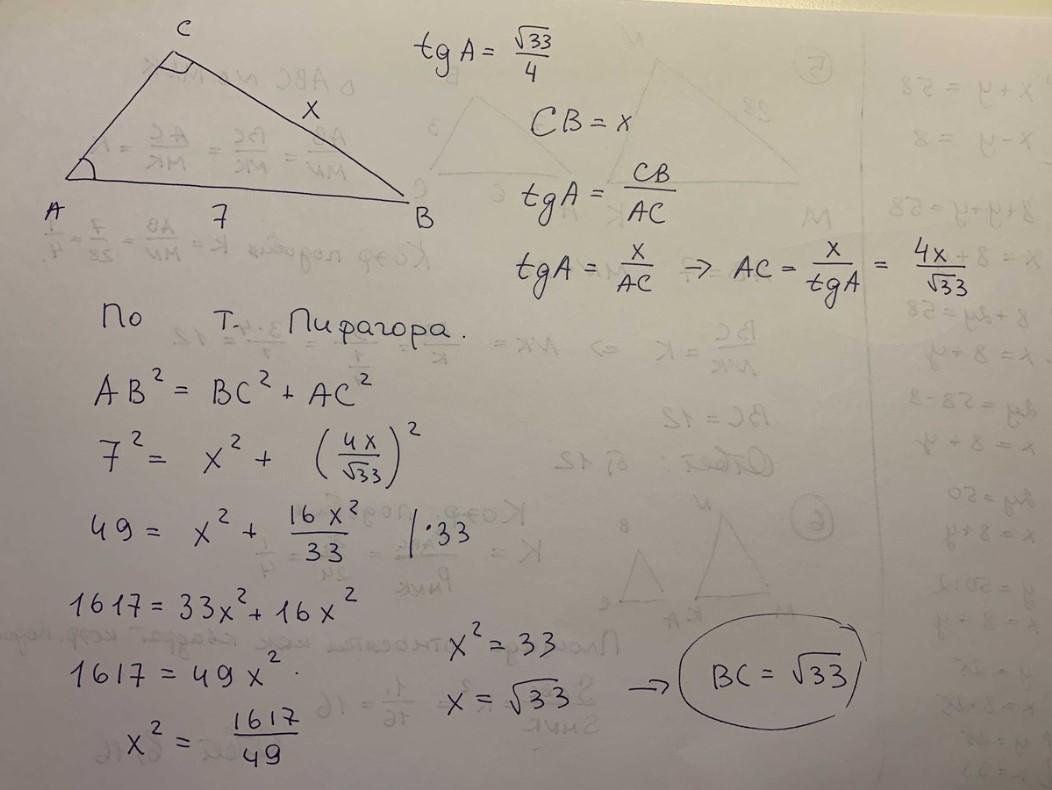 C
x
A
7
B
tgA = √33/4
CB = x
tgA = CB/AC
tgA = x/AC → AC = x/tgA = 4x/√33
По Т. Пифагора.
AB² = BC² + AC²
7² = x² + (4x/√33)²
49 = x² + 16x²/33 |·33
1617 = 33x² + 16x²
1617 = 49x².
x² = 1617/49
x² = 33
x = √33 → BC = √33